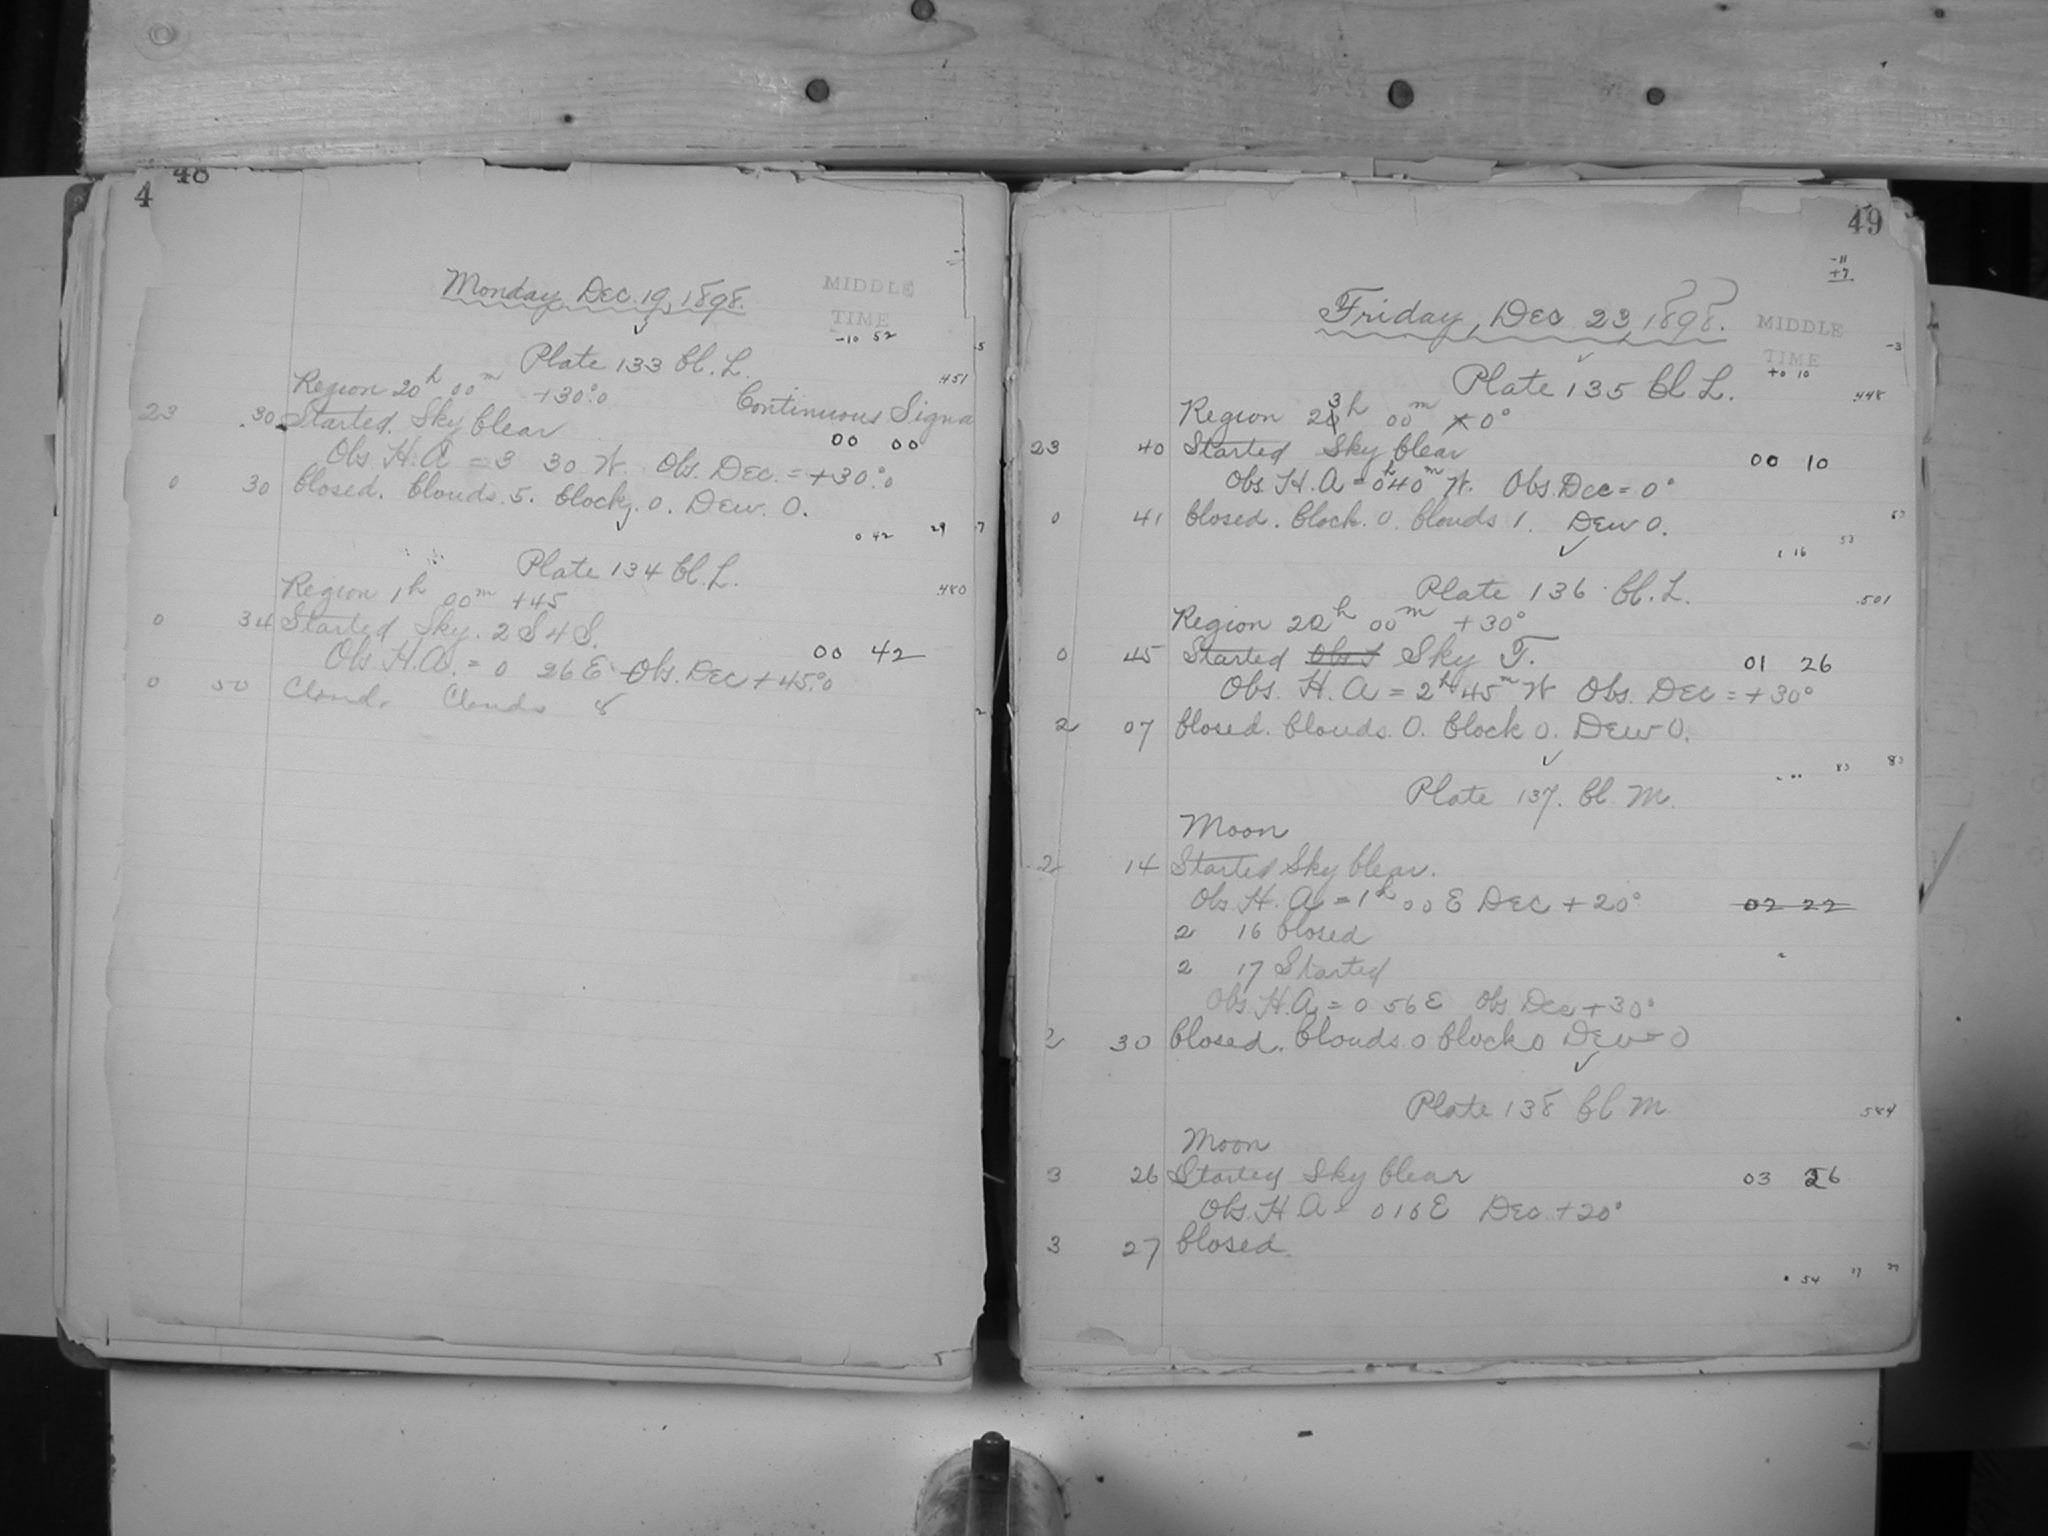 48
Monday, Dec. 19, 1898.
MIDDLE
TIME
-10 52
Plate 133 Cl. L.
451
Region 20h 00m +30°.0
Continuous Signa
23 30 Started. Sky Clear
00 00
Obs. H.A = 3 30 W. Obs. Dec. = +30°.0
0 30 Closed. Clouds. 5. Clock. 0. Dew. 0.
0 42 29
Plate 134 Cl. L.
480
Region 1h 00m +45
0 34 Started Sky. 2 S 4 S.
00 42
Obs. H.A. = 0 26 E. Obs. Dec + 45°.0
0 50 Closed. Clouds 8
49
-11
+7
Friday, Dec 23, 1898.
MIDDLE
TIME
+0 10
-3
Plate 135 Cl L.
448
Region 23h 00m 0°
23 40 Started Sky Clear
00 10
Obs. H.A = 0h40m W. Obs. Dec = 0°
0 41 Closed. Clock. 0. Clouds 1. Dew 0.
1 16 53
Plate 136 Cl. L.
501
Region 22h 00m +30°
0 45 Started Sky F.
01 26
Obs. H. A = 2h 45m W Obs. Dec = +30°
2 07 Closed. Clouds. 0. Clock 0. Dew 0.
83 83
Plate 137. Cl M.
Moon
2 14 Started Sky Clear.
Obs H. A = 1h 00 E Dec + 20°
02 22
2 16 Closed
2 17 Started
Obs. H.A. = 0 56 E Obs Dec + 30°
2 30 Closed. Clouds. 0 Clock 0 Dew 0
Plate 138 Cl M
584
Moon
3 26 Started Sky Clear
03 26
Obs. H A = 0 10 E Dec. +20°
3 27 Closed.
54 37 37